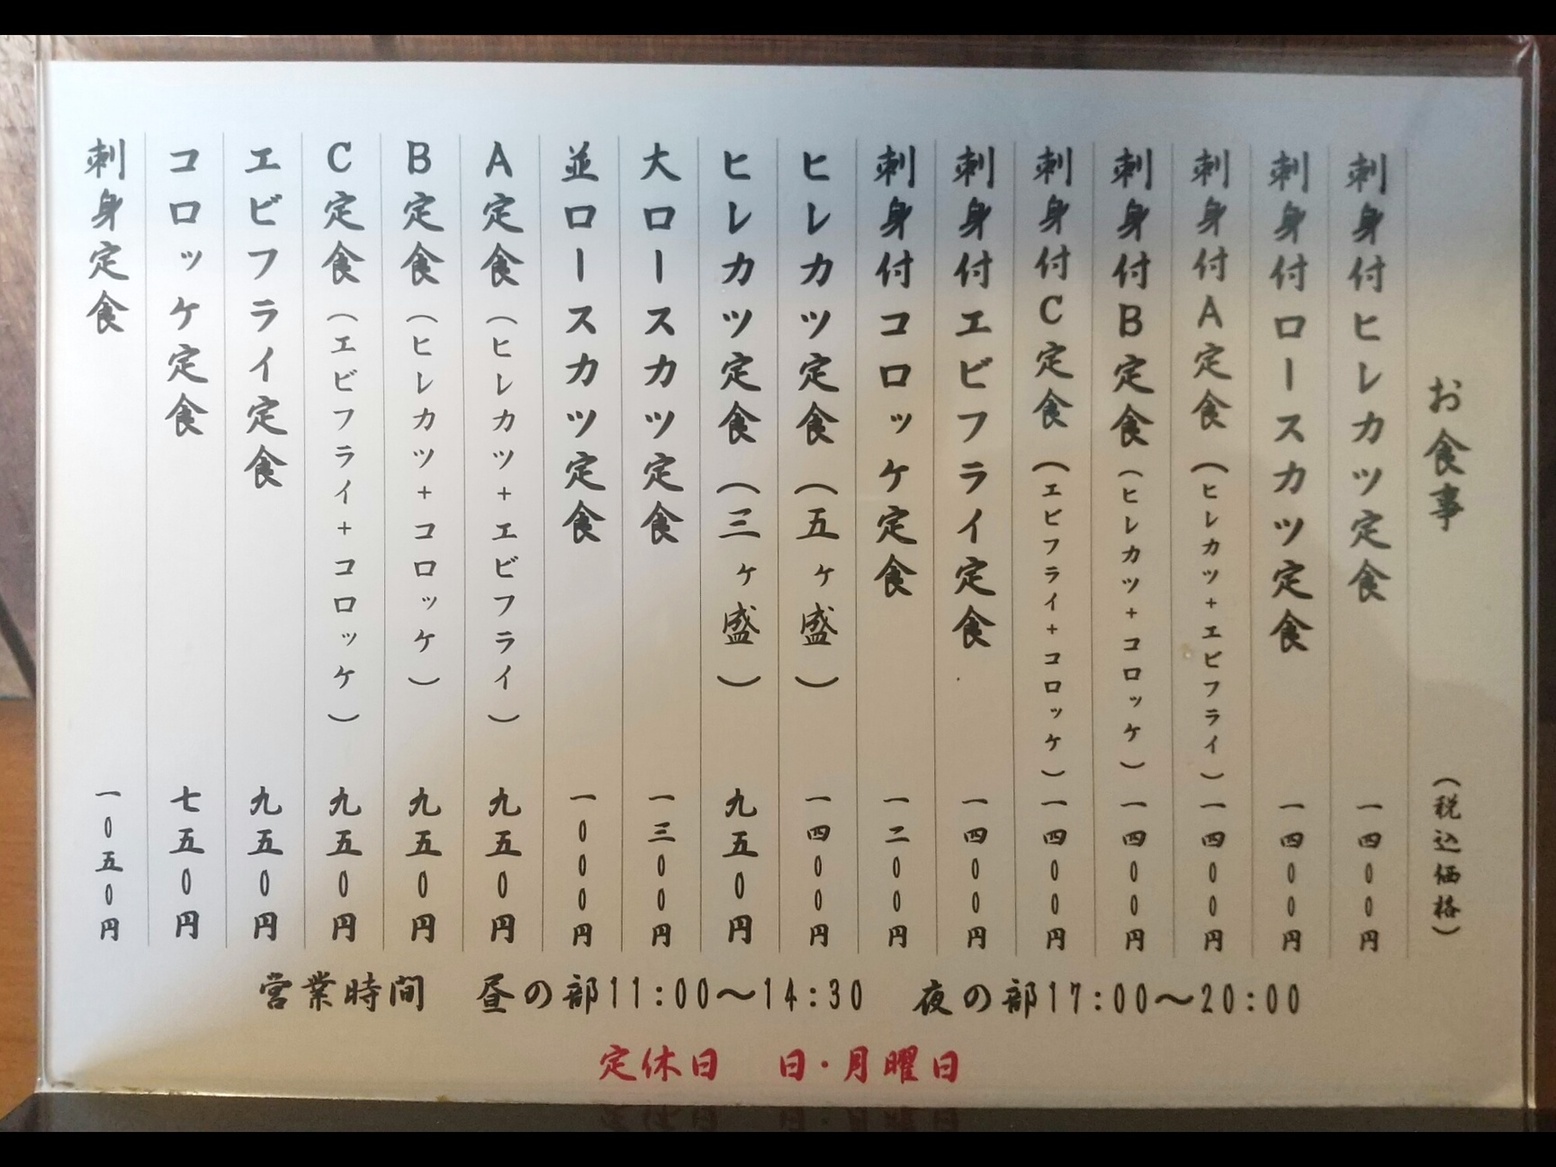 お食事 (税込価格)
刺身付ヒレカツ定食 一四00円
刺身付ロースカツ定食 一四00円
刺身付A定食(ヒレカツ+エビフライ) 一四00円
刺身付B定食(ヒレカツ+コロッケ) 一四00円
刺身付C定食(エビフライ+コロッケ) 一四00円
刺身付エビフライ定食 一四00円
刺身付コロッケ定食 一二00円
ヒレカツ定食(五ヶ盛) 一四00円
ヒレカツ定食(三ヶ盛) 九五0円
大ロースカツ定食 一三00円
並ロースカツ定食 一000円
A定食(ヒレカツ+エビフライ) 九五0円
B定食(ヒレカツ+コロッケ) 九五0円
C定食(エビフライ+コロッケ) 九五0円
エビフライ定食 九五0円
コロッケ定食 七五0円
刺身定食 一0五0円
営業時間 昼の部11:00〜14:30 夜の部17:00〜20:00
定休日 日・月曜日